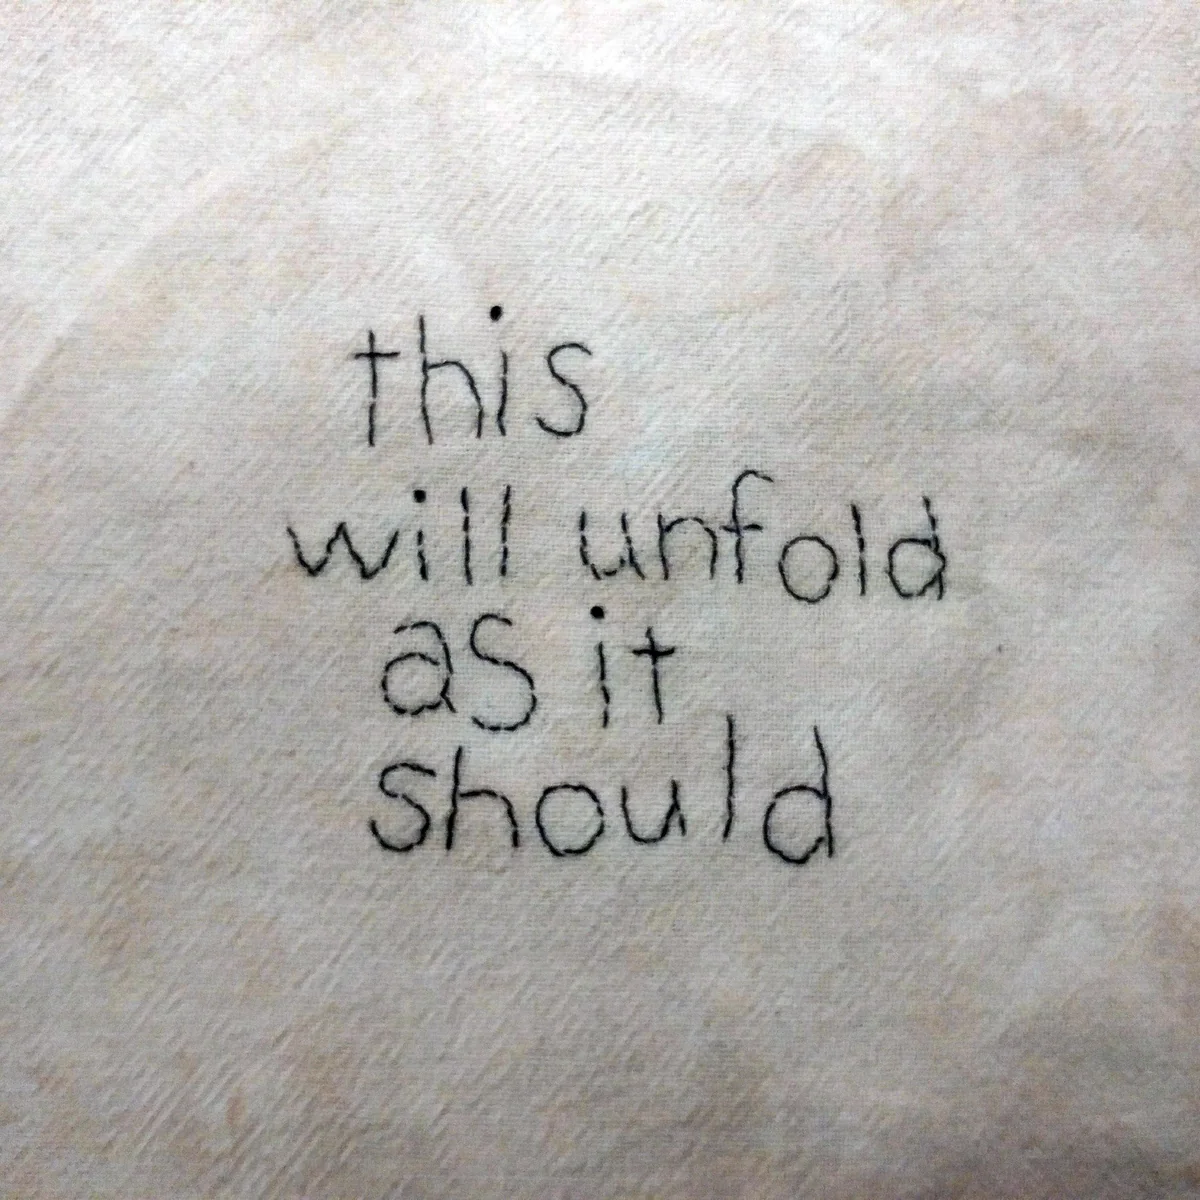 this
will unfold
as it
should